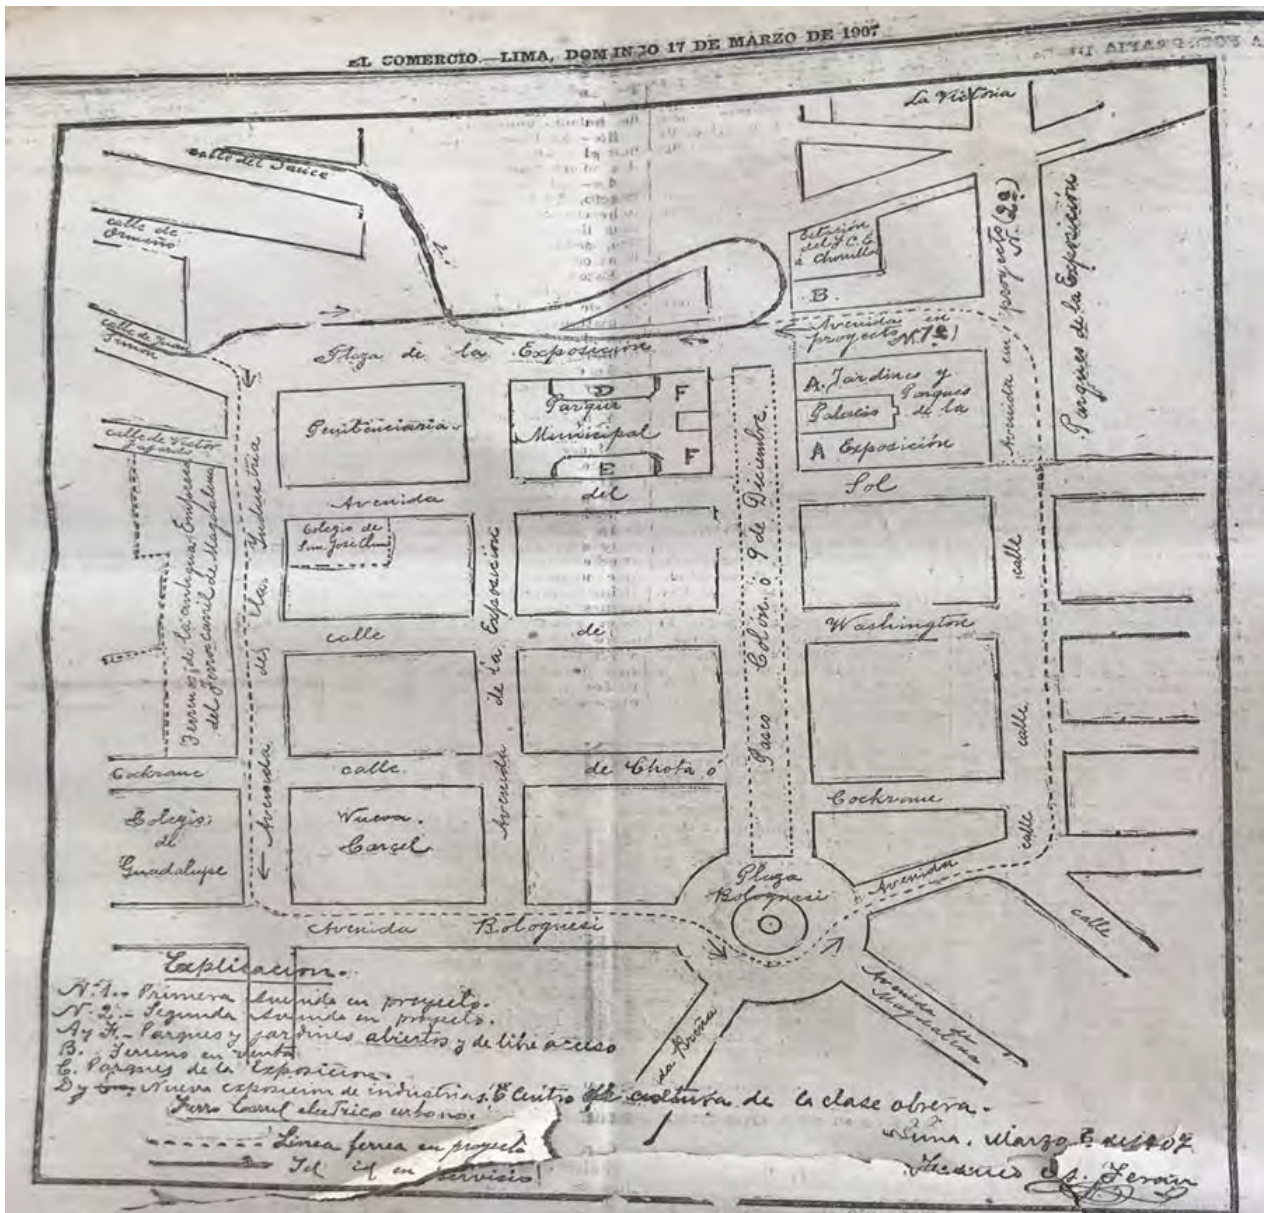 EL COMERCIO.—LIMA, DOMINGO 17 DE MARZO DE 1907
La Victoria
calle del Sauce
calle de
Ormeño
Estación
del F.C.E
á Chorrillos
B.
Avenida en
proyecto N(1ª)
Avenida en proyecto (2ª)
Parques de la Exposición
calle de Juan
Simón
Plaza de la Exposición
Penitenciaría
D
Parque
Municipal
E
F
F
A. Jardines y
Parques
Palacio de la
A Exposición
calle de Victor
Fajardo
Avenida del Sol
Colegio de
San José Cluni
Terrenos de la antigua Empresa
del Ferrocarril de Magdalena
Avenida de la Industria
Avenida de la Exposición
Paseo Colón ó 9 de Diciembre.
calle
calle de Washington
calle
Cockrane calle de Chota ó Cockrane
Colegio
de
Guadalupe
Nueva
Carcel
calle
Plaza
Bolognesi
Avenida
calle
Avenida Bolognesi
Avenida de
Magdalena
da Breña
Explicacion.
N. 1.- Primera Avenida en proyecto.
N. 2.- Segunda Avenida en proyecto.
A y F.- Parques y jardines abiertos y de libre acceso
B. Terreno en venta
C. Parques de la Exposicion.
D y Nueva exposicion de industrias. E Centro de cultura de la clase obrera.
Ferro Carril electrico urbano.
Linea ferrea en proyecto
Id id en servicio
Lima, Marzo de 1907